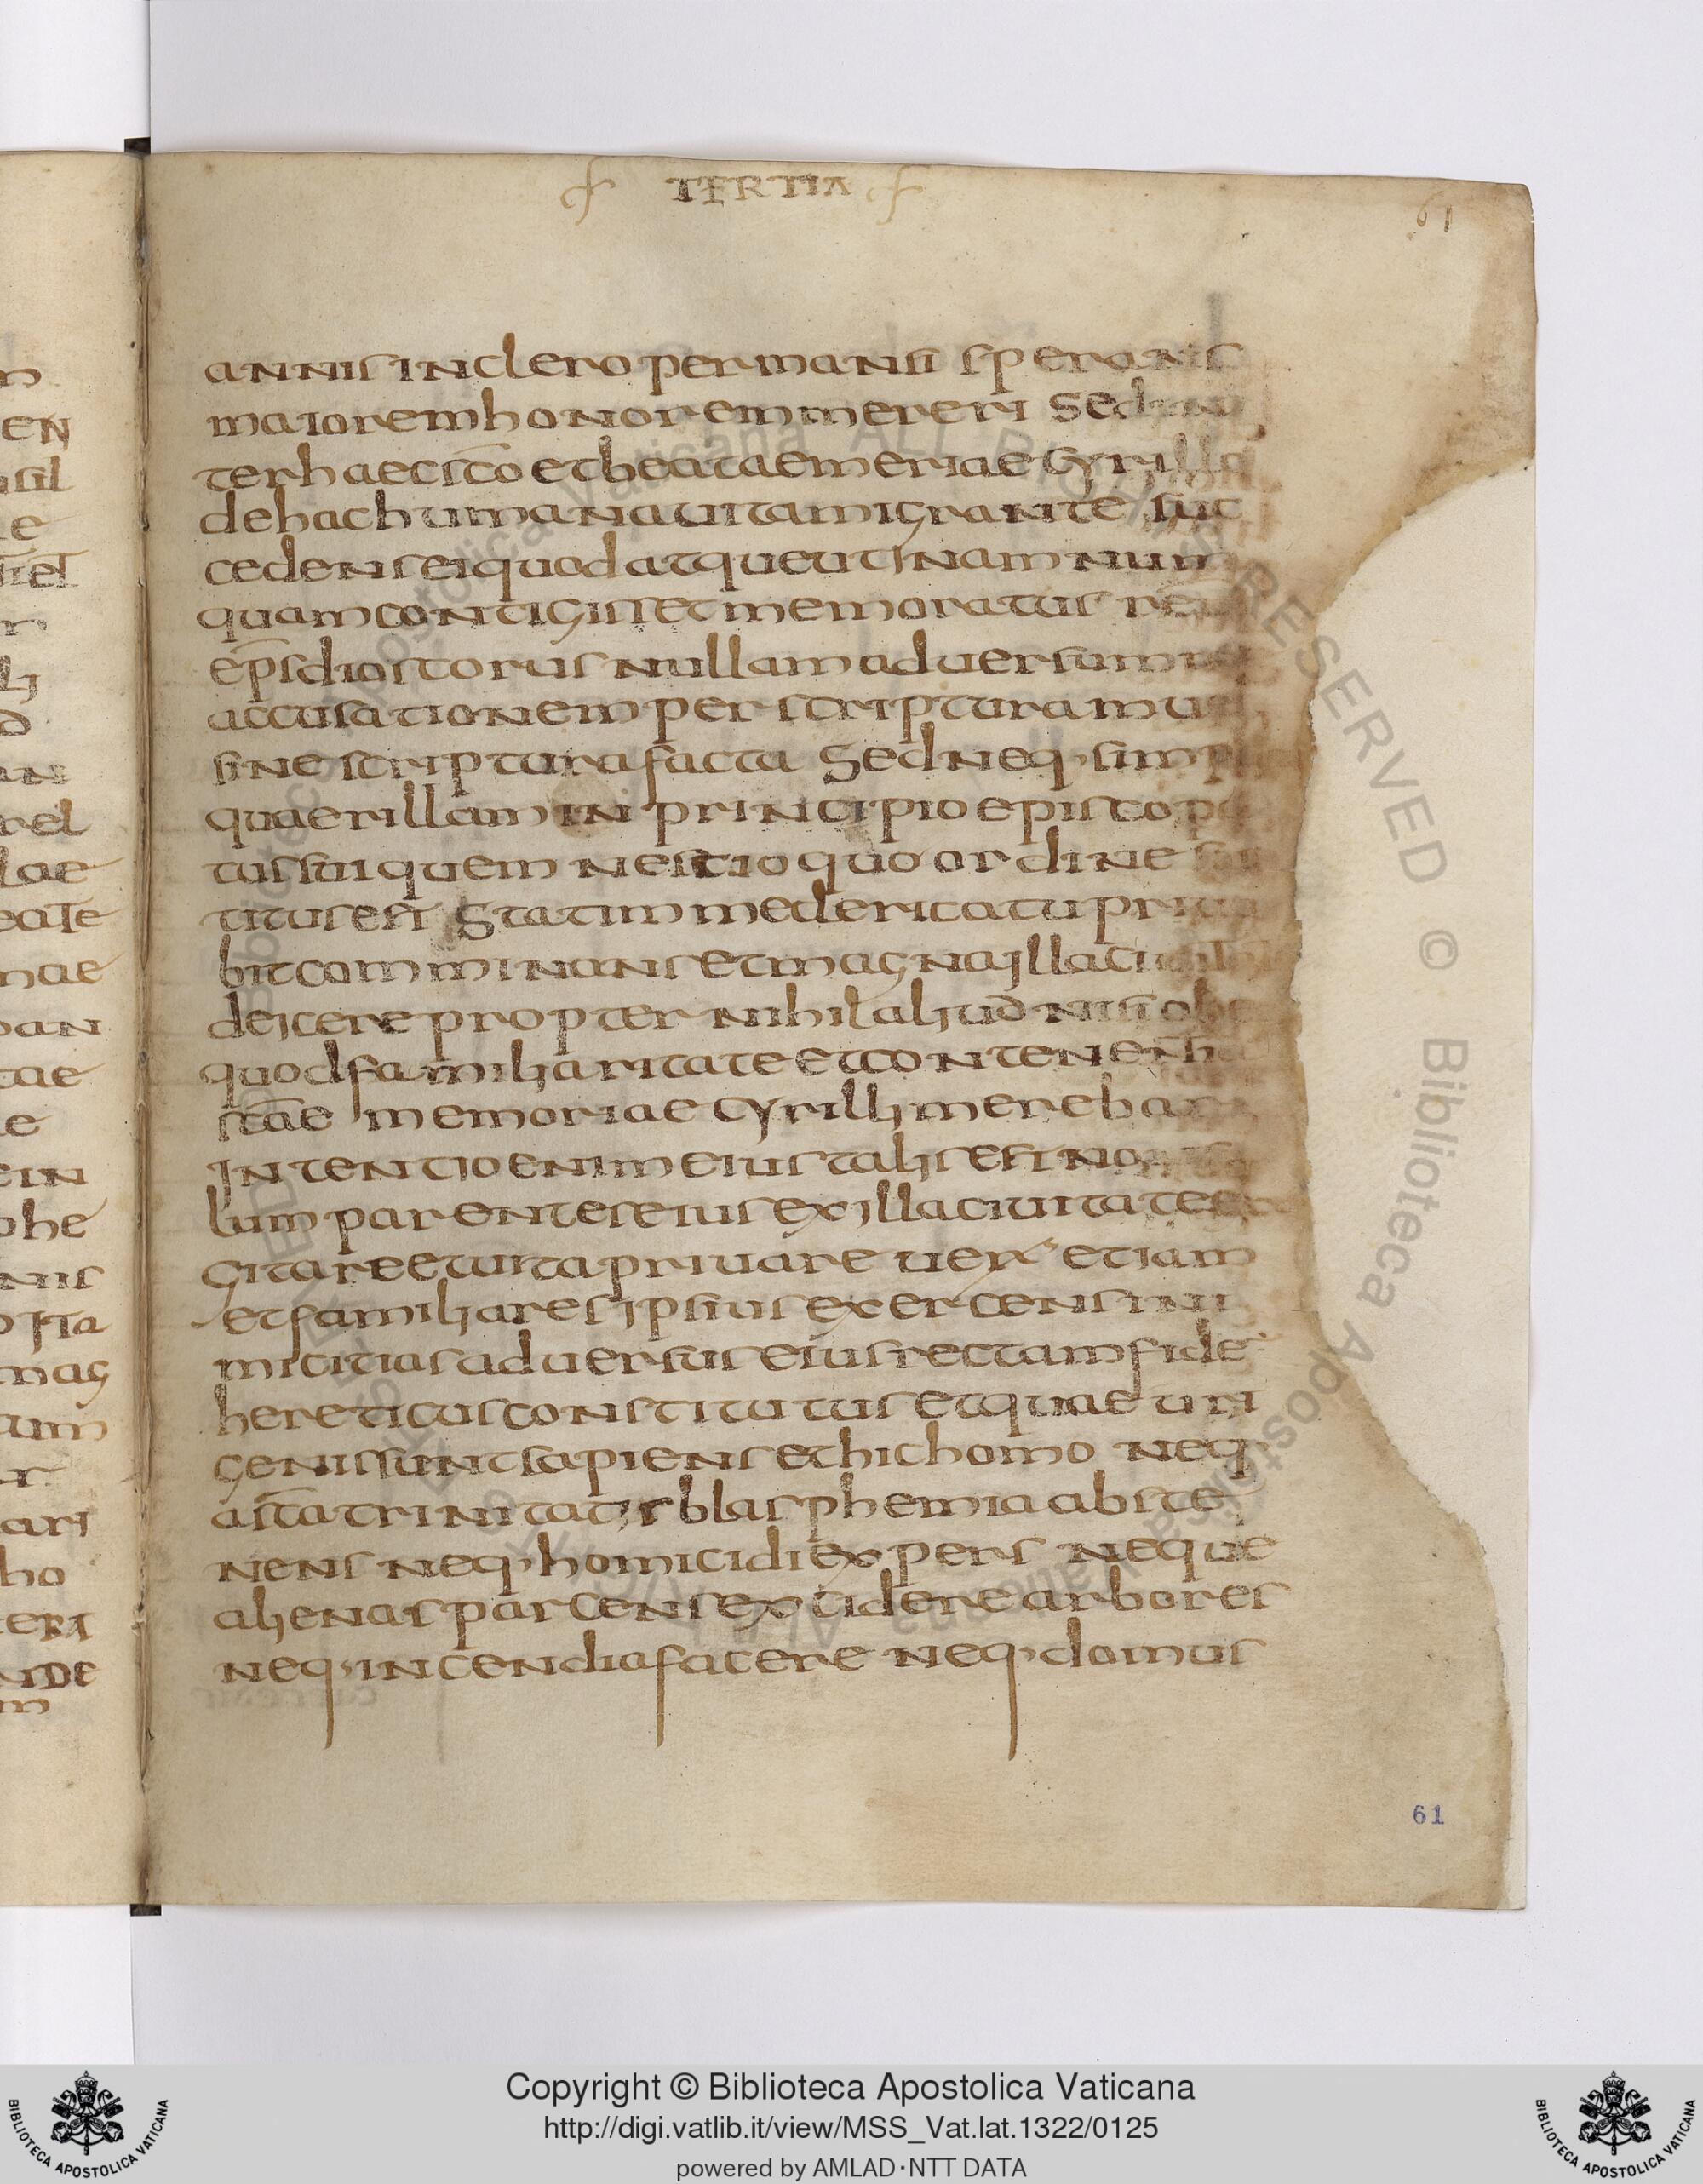 TERTIA
61
annis in clero permansi sperans
maiorem honorem mereri Sed in
ter haec sc̄o et beatae memeriae Cyrillo
de hac humana uita migrante suc
cedens ei quod atque utinam num
quam contigisset memoratus
ep̄s dioscorus nullam aduersum
accusationem per scripturam uel
sine scriptura facta Sed neq· simpli
quaerillam in principio episcopa
tus sui quem nescio quo ordine
titus est Statim me dericatu priua
bit comminans et magna illa
deicere propter nihil aliud nisi ob
quod familiaritate et contenens
sc̄ae memoriae Cyrilli merebar
Intentio enim eius talis est non
lum parentes eius ex illa ciuitate
gitare et uita priuare uer etiam
et familiares ipsius exercens ini
micitias aduersus eius rectam fidē
hereticus constitutus et quae uri
genis sunt sapiens et hic homo neq·
a sc̄a trinitatis blasphemia abste
nens neq· homicidi expers neque
alienas parcens excidere arbores
neq· incendia facere neq· domus
61
m
EN
sil
e
lae
mae
tae
e
EIN
nis
mag
um
r
ho
NDE
m
Copyright © Biblioteca Apostolica Vaticana
http://digi.vatlib.it/view/MSS_Vat.lat.1322/0125
powered by AMLAD·NTT DATA
BIBLIOTECA APOSTOLICA VATICANA
BIBLIOTECA APOSTOLICA VATICANA